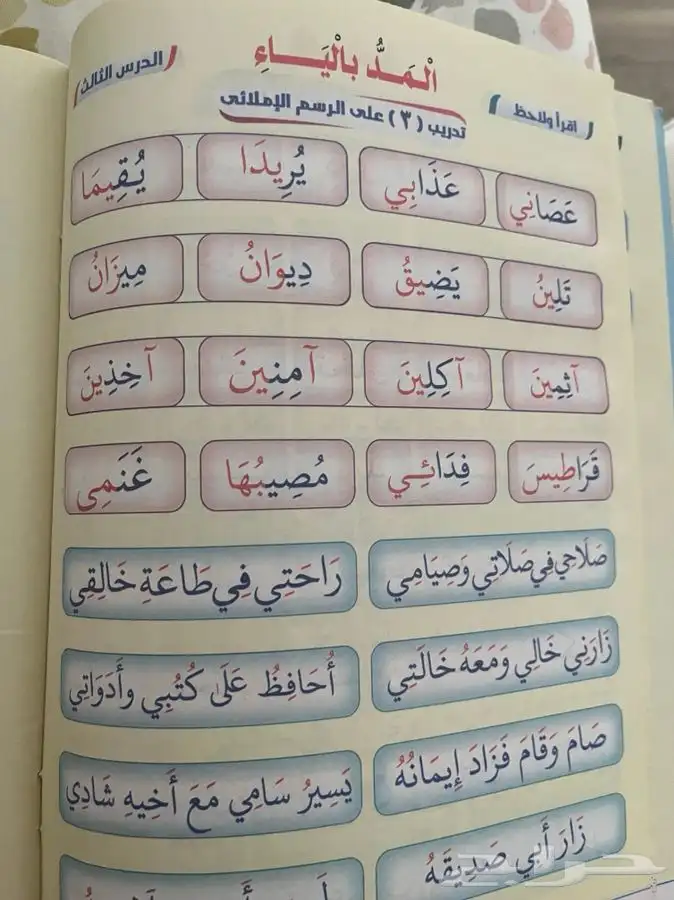 الْمَدُّ بالْيَـــاءِ
الدرس الثالث
اقرأ ولاحظ
تدريب (٣) على الرسم الإملائى
عَصَانِي عَذَابِي يُرِيدَا يُقِيمَا
تَلِينُ يَضِيقُ دِيوَانُ مِيزَانُ
آثِمِينَ آكِلِينَ آمِنِينَ آخِذِينَ
قَرَاطِيسَ فِدَائِــي مُصِيبُهَا غَنَمِى
صَلَاحِي فِي صَلَاتِي وَصِيَامِي رَاحَتِي فِي طَاعَةِ خَالِقِي
زَارَنِي خَالِي وَمَعَهُ خَالَتِي أُحَافِظُ عَلَى كُتُبِي وأَدَوَاتِي
صَامَ وَقَامَ فَزَادَ إِيمَانُهُ يَسِيرُ سَامِي مَعَ أَخِيهِ شَادِي
زَارَ أَبي صَدِيقَهُ